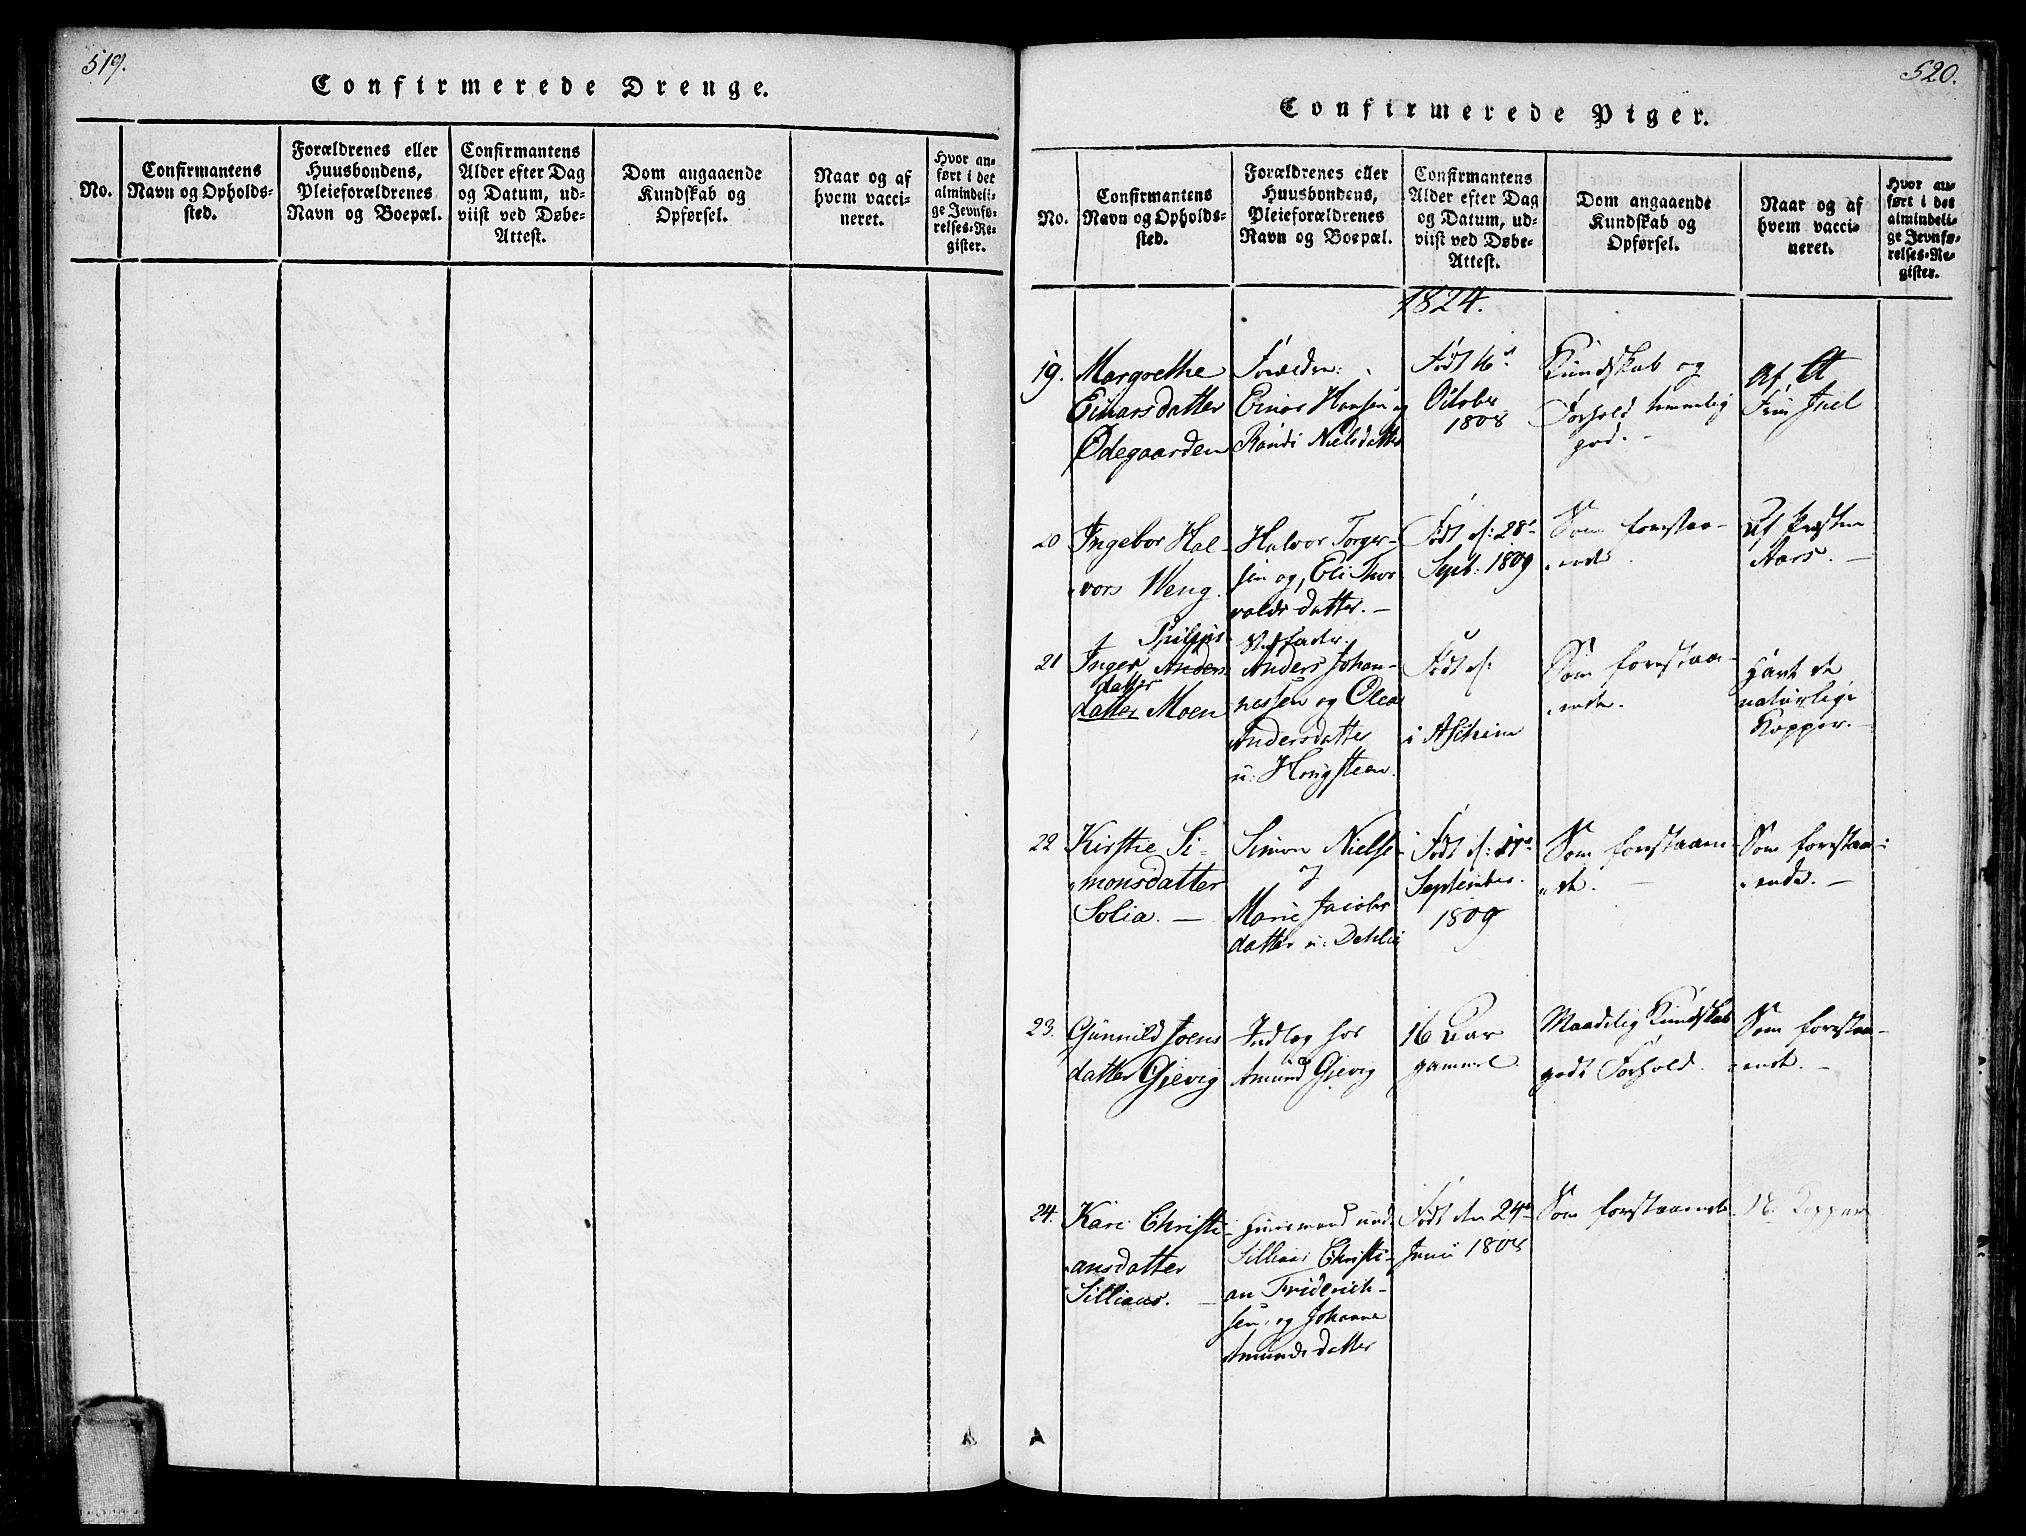 519.
Confirmerede Drenge.
No.
Confirmantens
Navn og Opholds-
sted.
Forældrenes eller
Huusbondens,
Pleieforældrenes
Navn og Boepæl.
Confirmantens
Alder efter Dag
og Datum, ud-
viist ved Døbe-
Attest.
Dom angaaende
Kundskab og
Opførsel.
Naar og af
hvem vacci-
neret.
Hvor an-
ført i det
almindeli-
ge Jevnfø-
relses-Re-
gister.
520.
Confirmerede Piger.
No.
Confirmantens
Navn og Opholds-
sted.
Forældrenes eller
Huusbondens,
Pleieforældrenes
Navn og Boepæl.
Confirmantens
Alder efter Dag
og Datum, ud-
viist ved Døbe-
Attest.
Dom angaaende
Kundskab og
Opførsel.
Naar og af
hvem vacci-
neret.
Hvor an-
ført i det
almindeli-
ge Jevnfø-
relses-Re-
gister.
1824.
19.
Margrethe
Einarsdatter
Ødegaarden
Forældre:
Einar Hansen og
Randi Nielsdatter
Født
October
1808
Kundskab og
Forhold temmelig
god.
Af
Juel
20
Ingebor Hal-
vors Weng.
Halvor Torger-
sen og, Eli Thor
valds datter. -
Født d: 28de
Sept: 1809
Som forestaa-
ende.
Af Præsten
Aars. -
21
Inger Anders
datter
datter Moen
Stedfader.
Anders Johan-
nessen og Olea
Andersdatter
u: Hougsteen.
Født d:
i Aschim
Som forestaa-
ende.
Havt de
naturlige
Kopper. -
22
Kirstie Si-
monsdatter
Solia. -
Simon Niels-
og
Marie Jacobs
datter u: Dehlie
Født d: 17de
September.
1809
Som forestaaen-
de. -
Som forestaa-
ende. -
23.
Gunnild Joens
datter Gjevig
Indlæg hos
Amund Gjevig
16 Aar
gammel.
Maadelig Kundskab
godt Forhold.
Som forestaa-
ende. -
24.
Kari Christi-
ansdatter
Sillians. -
Huusmand und:
Silliaas Christi-
an Friderich-
sen, og Johanne
Amunds datter
Født den 24de
Junii 1808
Som forestaaende
N. Kopper